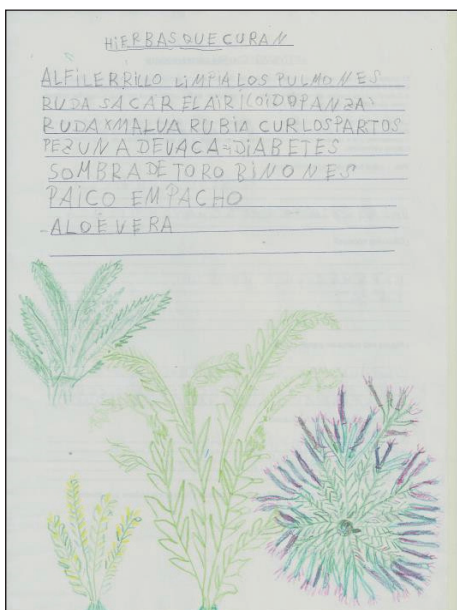 HIERBAS QUE CURAN
ALFILERRILLO LIMPIA LOS PULMONES
RUDA SACAR EL AIRE
RUDA X MALVA RUBIA CUR LOS PARTOS
PEZUNA DE VACA - DIABETES
SOMBRA DE TORO BINONES
PAICO EMPACHO
- ALOE VERA